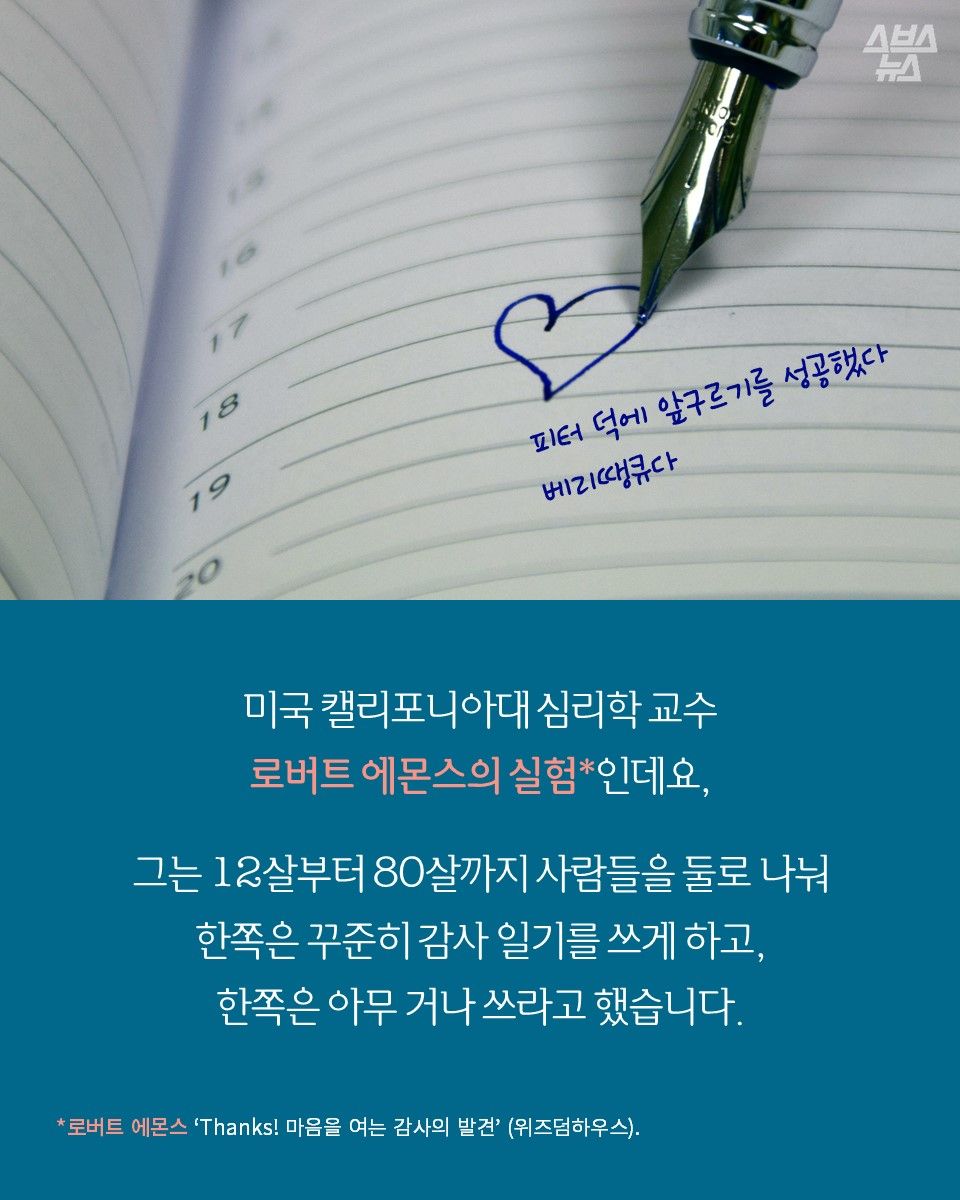 스브스
뉴스
15
16
17
18
19
20
피터 덕에 앞구르기를 성공했다
베리땡큐다
미국 캘리포니아대 심리학 교수
로버트 에몬스의 실험*인데요,
그는 12살부터 80살까지 사람들을 둘로 나눠
한쪽은 꾸준히 감사 일기를 쓰게 하고,
한쪽은 아무 거나 쓰라고 했습니다.
*로버트 에몬스 ‘Thanks! 마음을 여는 감사의 발견’ (위즈덤하우스).